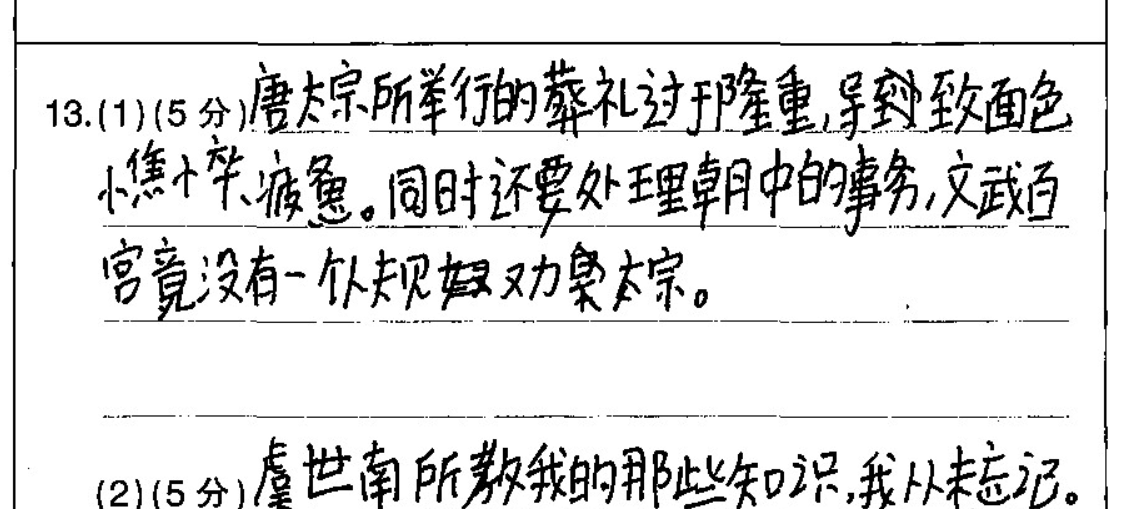 13.(1)(5分)唐太宗所举行的葬礼过于隆重,导致面色
憔悴、疲惫。同时还要处理朝中的事务,文武百
官竟没有一个人规劝太宗。
(2)(5分)虞世南所教我的那些知识,我从未忘记。